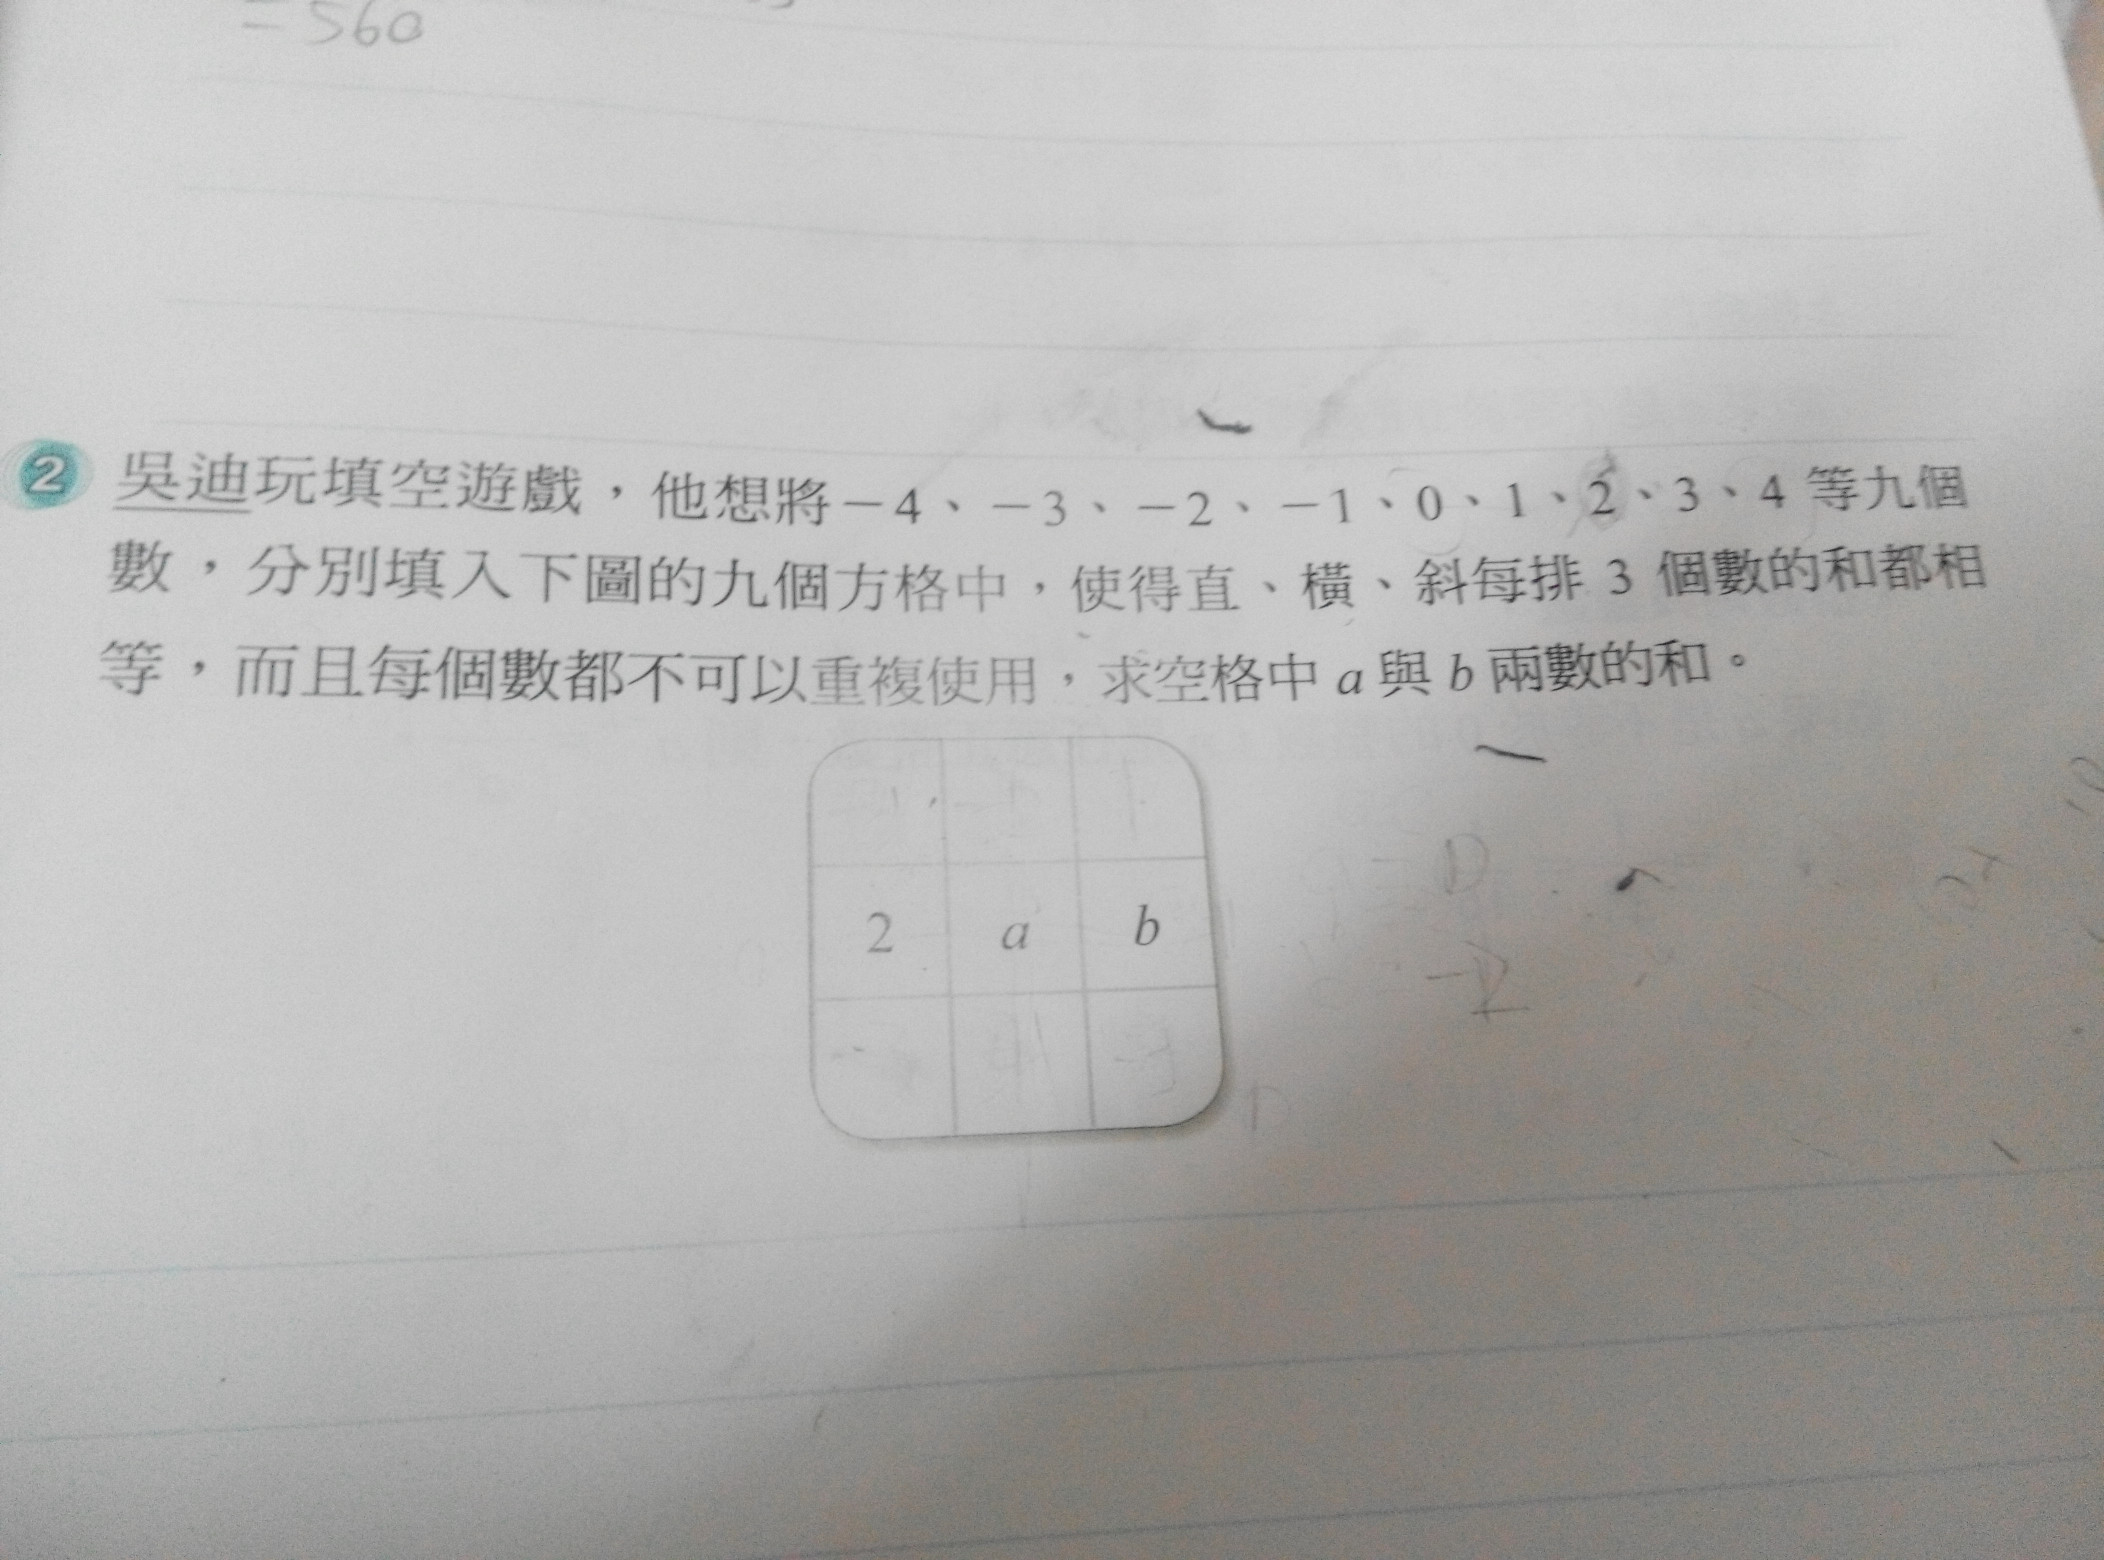 = 560
2 吳迪玩填空遊戲，他想將－4、－3、－2、－1、0、1、2、3、4 等九個
數，分別填入下圖的九個方格中，使得直、橫、斜每排 3 個數的和都相
等，而且每個數都不可以重複使用，求空格中 a 與 b 兩數的和。
2 a b